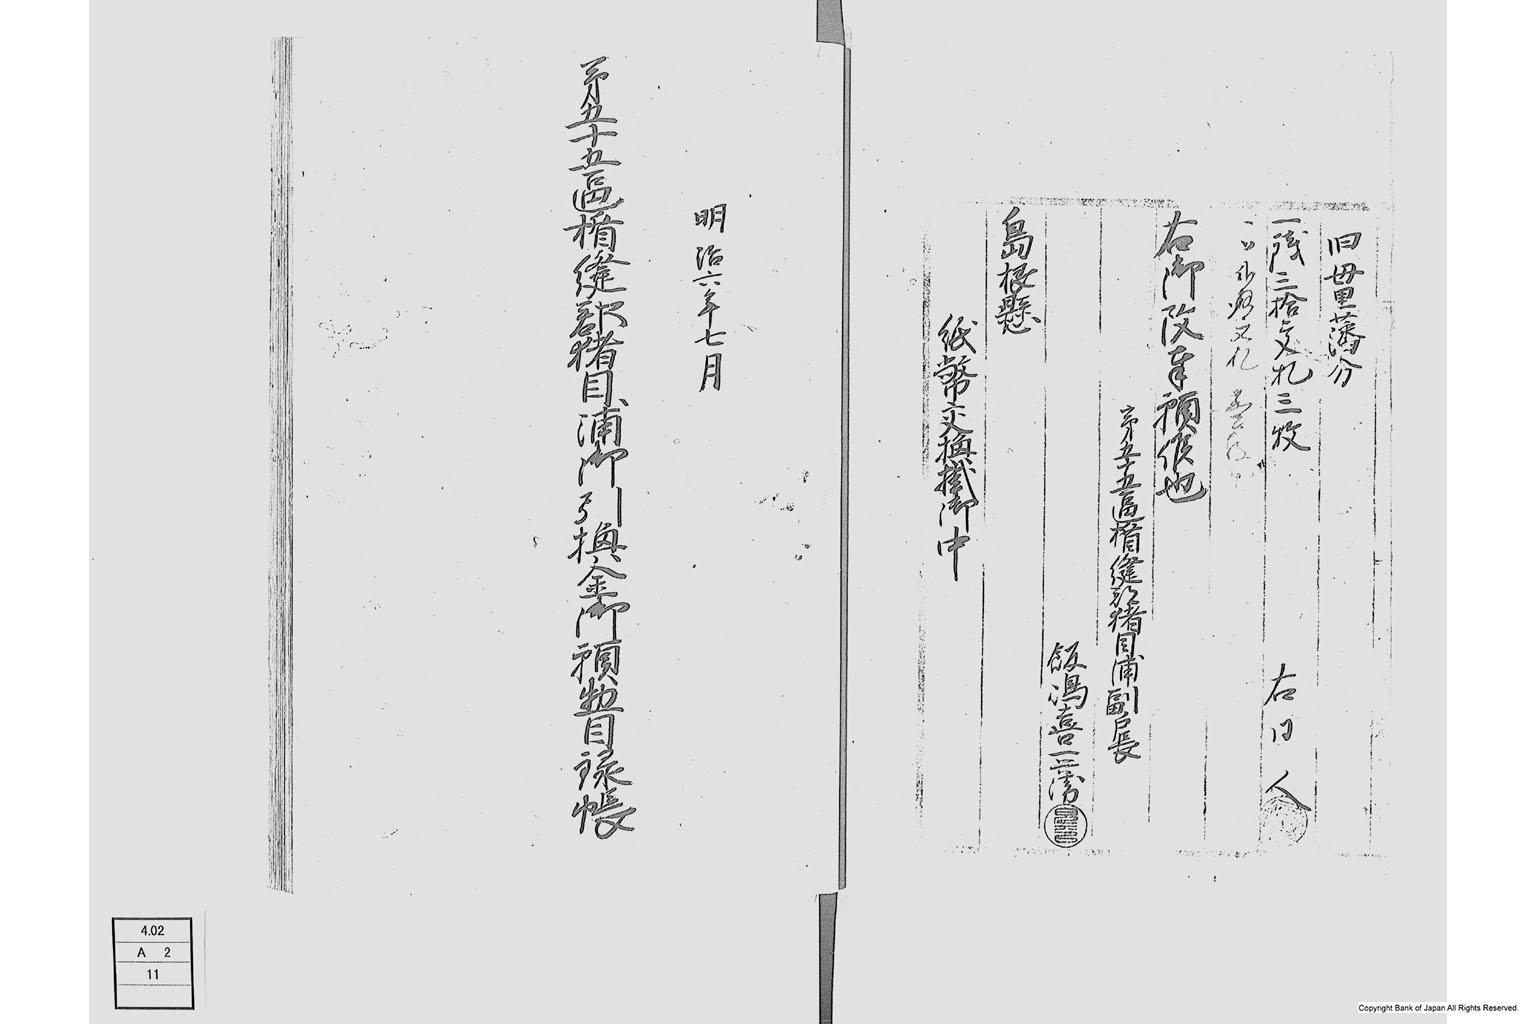 旧母里藩分
一銭三拾文札三枚
右同人
右御改奉願候也
第五十五區楯縫郡猪目浦副戸長
飯塲喜三濤
島根懸
紙幣交換掛御中
明治六年七月
第五十五區楯縫郡猪目浦御引換金御預物目録帳
4.02
A 2
11
Copyright Bank of Japan All Rights Reserved.